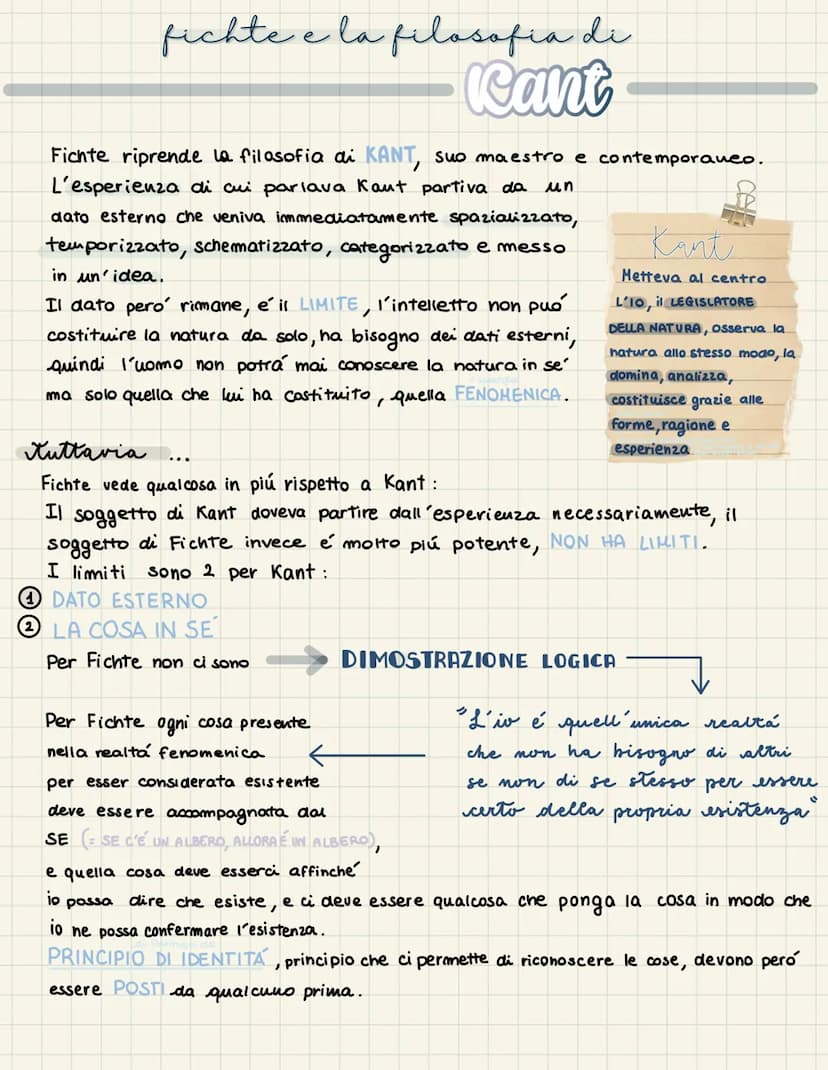 fichte e la filosofia di
Kant
Fichte riprende la filosofia di KANT, suo maestro e contemporaneo.
L'esperienza di cui parlava Kant partiva da un
dato esterno che veniva immediatamente spazializzato,
temporizzato, schematizzato, categorizzato e messo
in un'idea.
Il dato pero' rimane, e' il LIMITE, l'intelletto non può
costituire la natura da solo, ha bisogno dei dati esterni,
quindi l'uomo non potrá mai conoscere la natura in se'
ma solo quella che lui ha costituito, quella FENOMENICA.
Kant
Metteva al centro
L'IO, il LEGISLATORE
DELLA NATURA, osserva la
natura allo stesso modo, la
domina, analizza,
costituisce grazie alle
forme, ragione e
esperienza
Tuttavia ...
Fichte vede qualcosa in piú rispetto a Kant:
Il soggetto di Kant doveva partire dall'esperienza necessariamente, il
soggetto di Fichte invece é molto piú potente, NON HA LIMITI.
I limiti sono 2 per Kant:
1 DATO ESTERNO
2 LA COSA IN SE'
Per Fichte non ci sono DIMOSTRAZIONE LOGICA
"L'io é quell'unica realtá
che non ha bisogno di altri
se non di se stesso per essere
certo della propria esistenza"
Per Fichte ogni cosa presente
nella realtá fenomenica
per esser considerata esistente
deve essere accompagnata dal
SE (= SE C'É UN ALBERO, ALLORA É UN ALBERO),
e quella cosa deve esserci affinche'
io possa dire che esiste, e ci deve essere qualcosa che ponga la cosa in modo che
io ne possa confermare l'esistenza.
PRINCIPIO DI IDENTITA', principio che ci permette di riconoscere le cose, devono peró
essere POSTI da qualcuno prima.